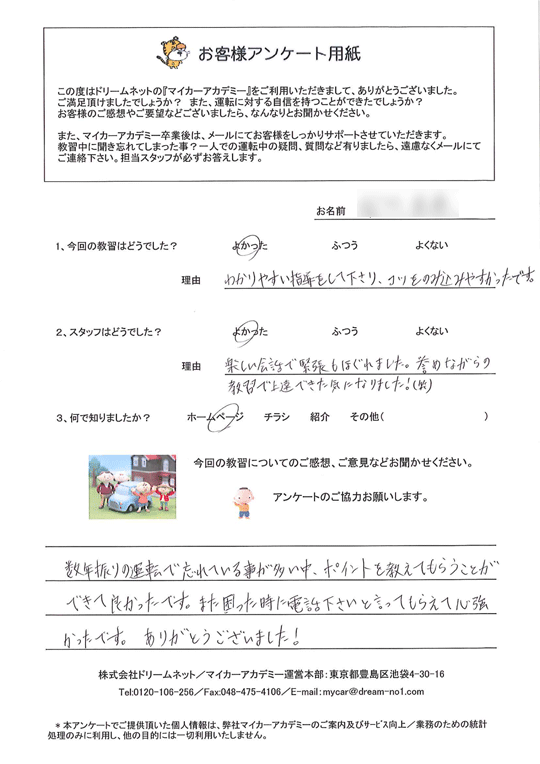 お客様アンケート用紙
この度はドリームネットの『マイカーアカデミー』をご利用いただきまして、ありがとうございました。
ご満足頂けましたでしょうか？ また、運転に対する自信を持つことができたでしょうか？
お客様のご感想やご要望などございましたら、なんなりとお聞かせください。
また、マイカーアカデミー卒業後は、メールにてお客様をしっかりサポートさせていただきます。
教習中に聞き忘れてしまった事？一人での運転中の疑問、質問など有りましたら、遠慮なくメールにて
ご連絡下さい。担当スタッフが必ずお答えします。
お名前
1、今回の教習はどうでした？ よかった ふつう よくない
理由 わかりやすい指導をして下さり、コツをのみ込みやすかったです。
2、スタッフはどうでした？ よかった ふつう よくない
理由 楽しい会話で緊張もほぐれました。誉めながらの
教習で上達できた気になりました！(笑)
3、何で知りましたか？ ホームページ チラシ 紹介 その他( )
今回の教習についてのご感想、ご意見などお聞かせください。
アンケートのご協力お願いします。
数年振りの運転で忘れている事が多い中、ポイントを教えてもらうことが
できて良かったです。また困った時に電話下さいと言ってもらえて心強
かったです。ありがとうございました！
株式会社ドリームネット／マイカーアカデミー運営本部：東京都豊島区池袋4-30-16
Tel:0120-106-256／Fax:048-475-4106／E-mail:mycar@dream-no1.com
＊本アンケートでご提供頂いた個人情報は、弊社マイカーアカデミーのご案内及びサービス向上／業務のための統計
処理のみに利用し、他の目的には一切利用いたしません。